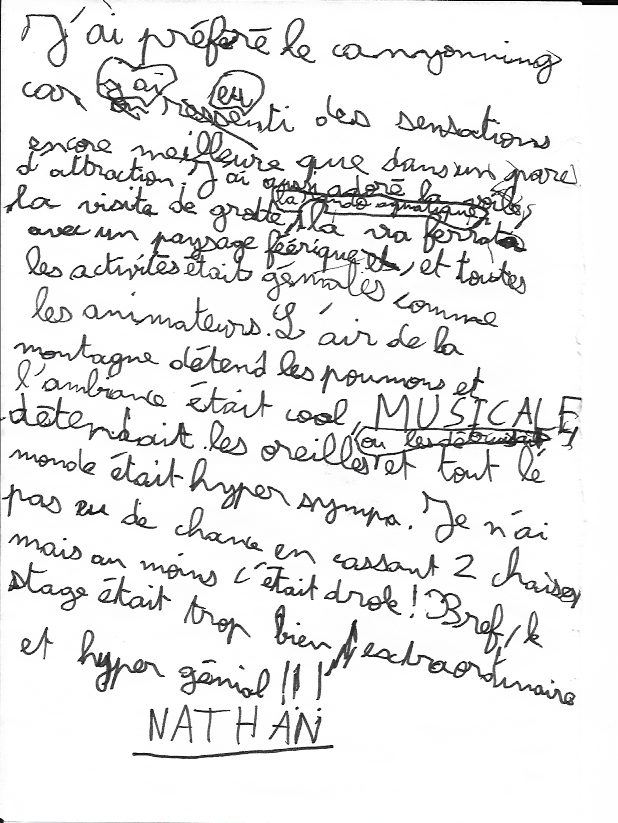 J'ai préféré le canyonning
car j'ai eu ressenti des sensations
encore meilleure que dans un parc
d'attraction. J'ai aussi adoré la voile,
la rando aquatique,
la visite de grotte, la via ferrata
avec un paysage féérique, et toutes
les activités était géniales comme
les animateurs. L'air de la
montagne détend les poumons et
l'ambiance était cool, MUSICALE
détendait les oreilles (ou les détruisait)
et tout lé
monde était hyper sympa. Je n'ai
pas eu de chance en cassant 2 chaises
mais au moins c'était drole ! Bref, le
stage était trop bien, extraordinaire
et hyper génial !!!
NATHAN